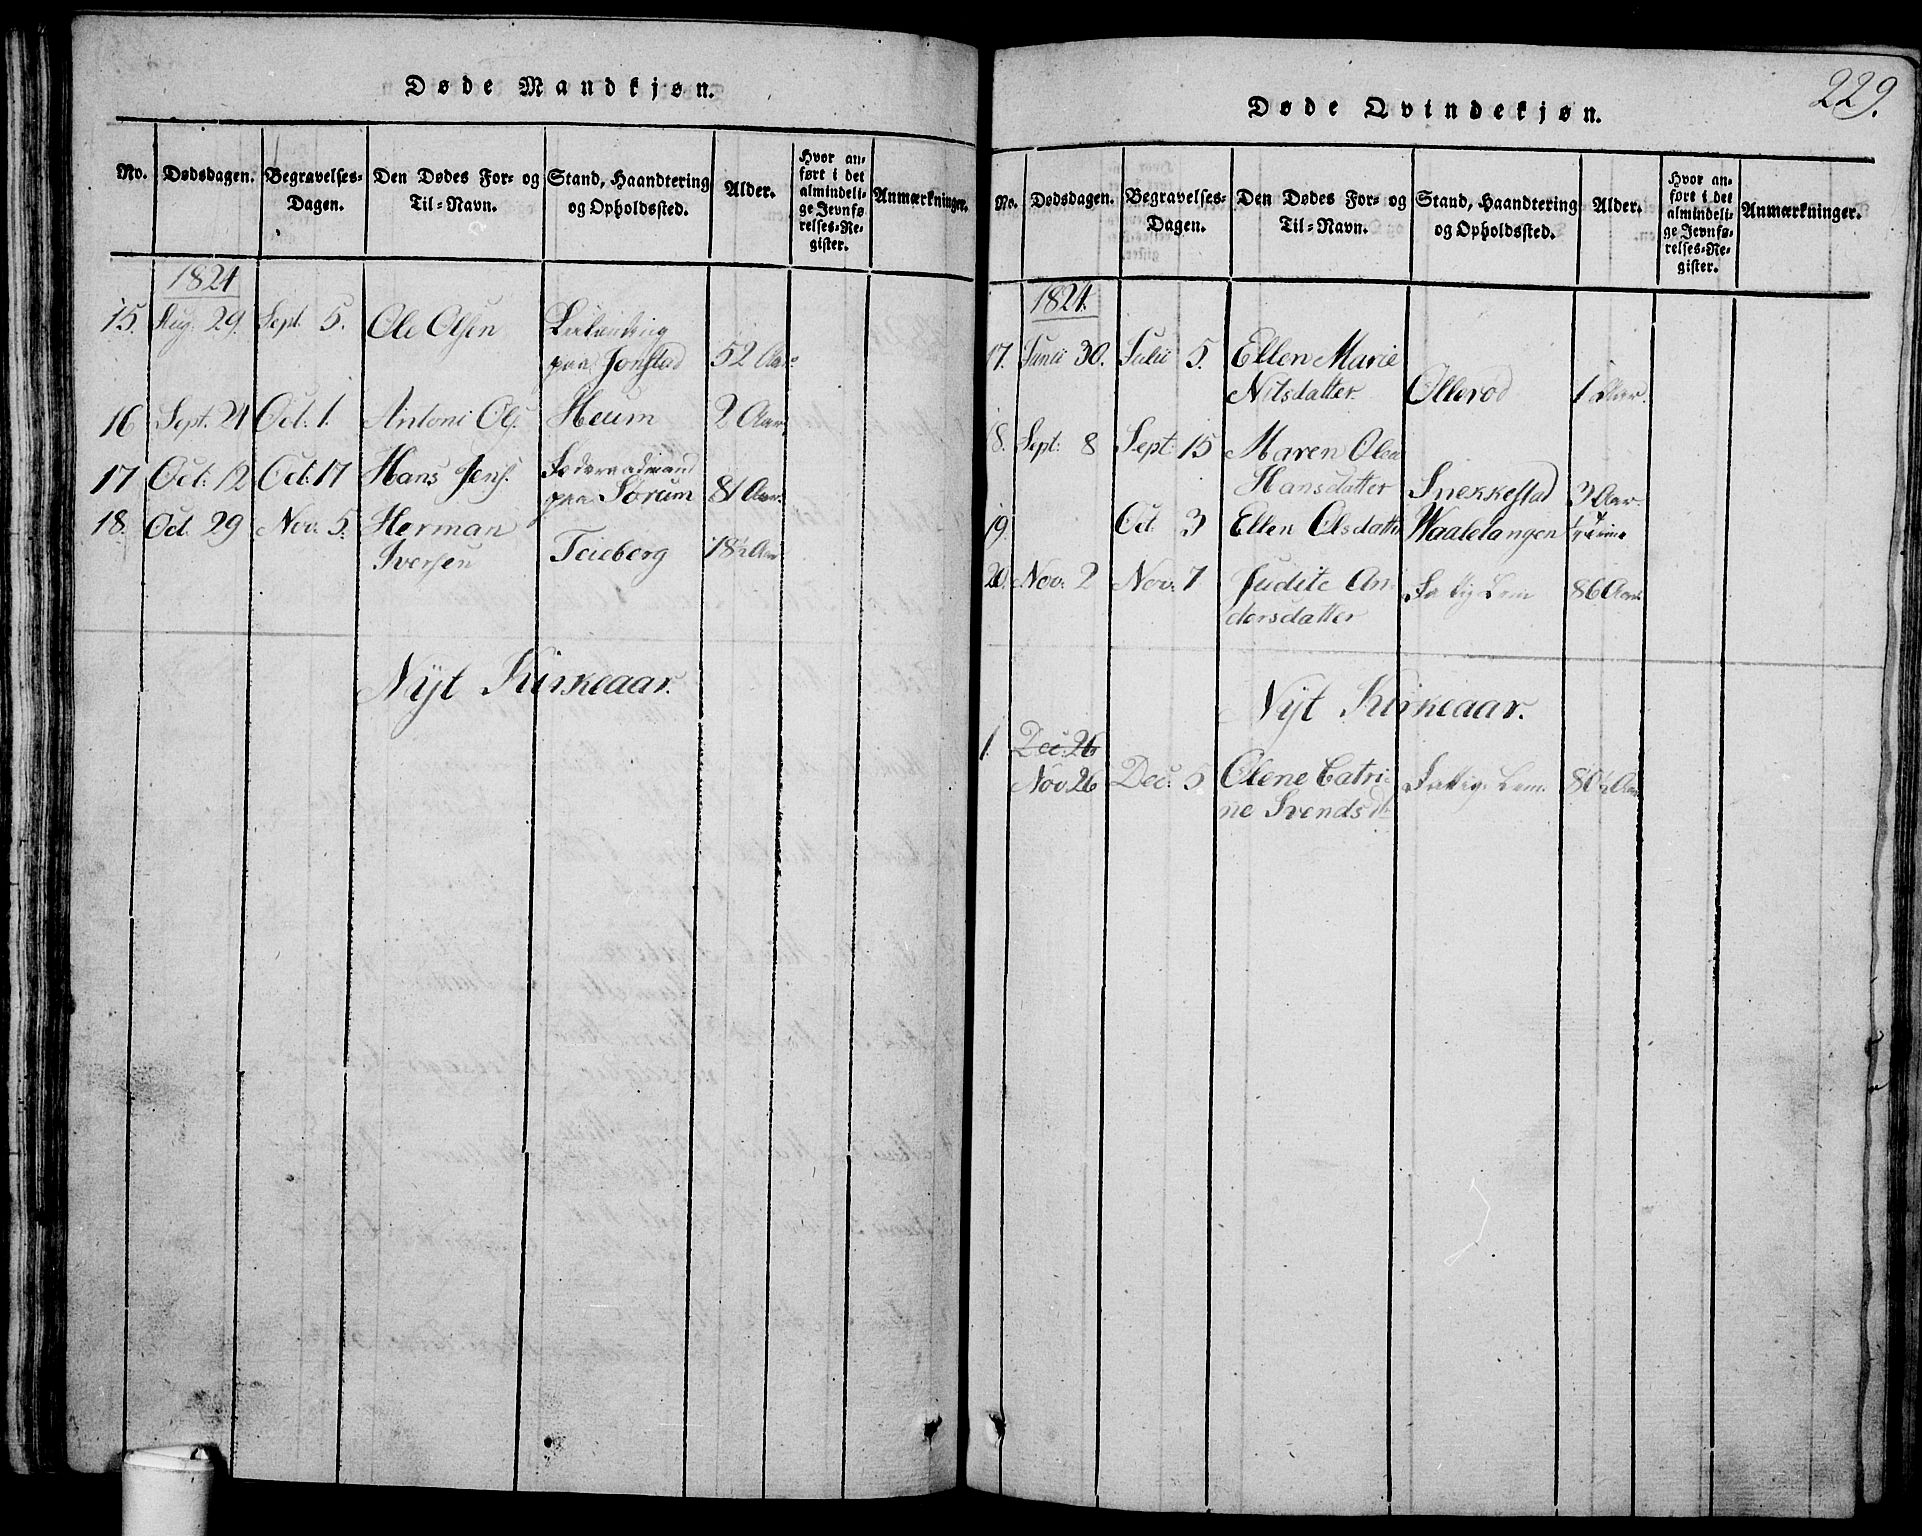 Døde Mandkjøn.
No.
Dødsdagen.
Begravelses-
Dagen.
Den Dødes For- og
Til-Navn.
Stand, Haandtering
og Opholdssted.
Alder.
Hvor an-
ført i det
almindeli-
ge Jevnfø-
relses-Re-
gister.
Anmærkninger.
1824
15. Aug. 29. Sept. 5. Ole Olsen
paa Jonstad 52 Aar.
16 Sept. 24 Oct: 1. Antoni Ols. Heum 2 Aar.
17 Oct: 12 Oct: 17 Hans Jens. Føderaadmand
paa Sørum 81 Aar.
18. Oct. 29 Nov. 5. Herman
Iversen Teieberg Aar
Nyt Kirkeaar.
229.
Døde Qvindekjøn.
No.
Dødsdagen.
Begravelses-
Dagen.
Den Dødes For- og
Til-Navn.
Stand, Haandtering
og Opholdssted.
Alder.
Hvor an-
ført i det
almindeli-
ge Jevnfø-
relses-Re-
gister.
Anmærkninger.
1824.
17. Junii 30. Julii 5. Ellen Marie
Nilsdatter Ollerød 1 Aar.
18. Sept: 8 Sept: 15 Maren Olea
Hansdatter Snekkestad 3 Aar
19. Oct 3 Ellen Olsdatter Waalelangen
20. Nov: 2 Nov: 7 Judite An-
dersdatter Fattig Lem 86 Aar
Nyt Kirkeaar.
1. Dec: 26
Nov 26 Dec: 5 Olene Catri-
ne Svendsdr Fattig Lem. 80½ Aar